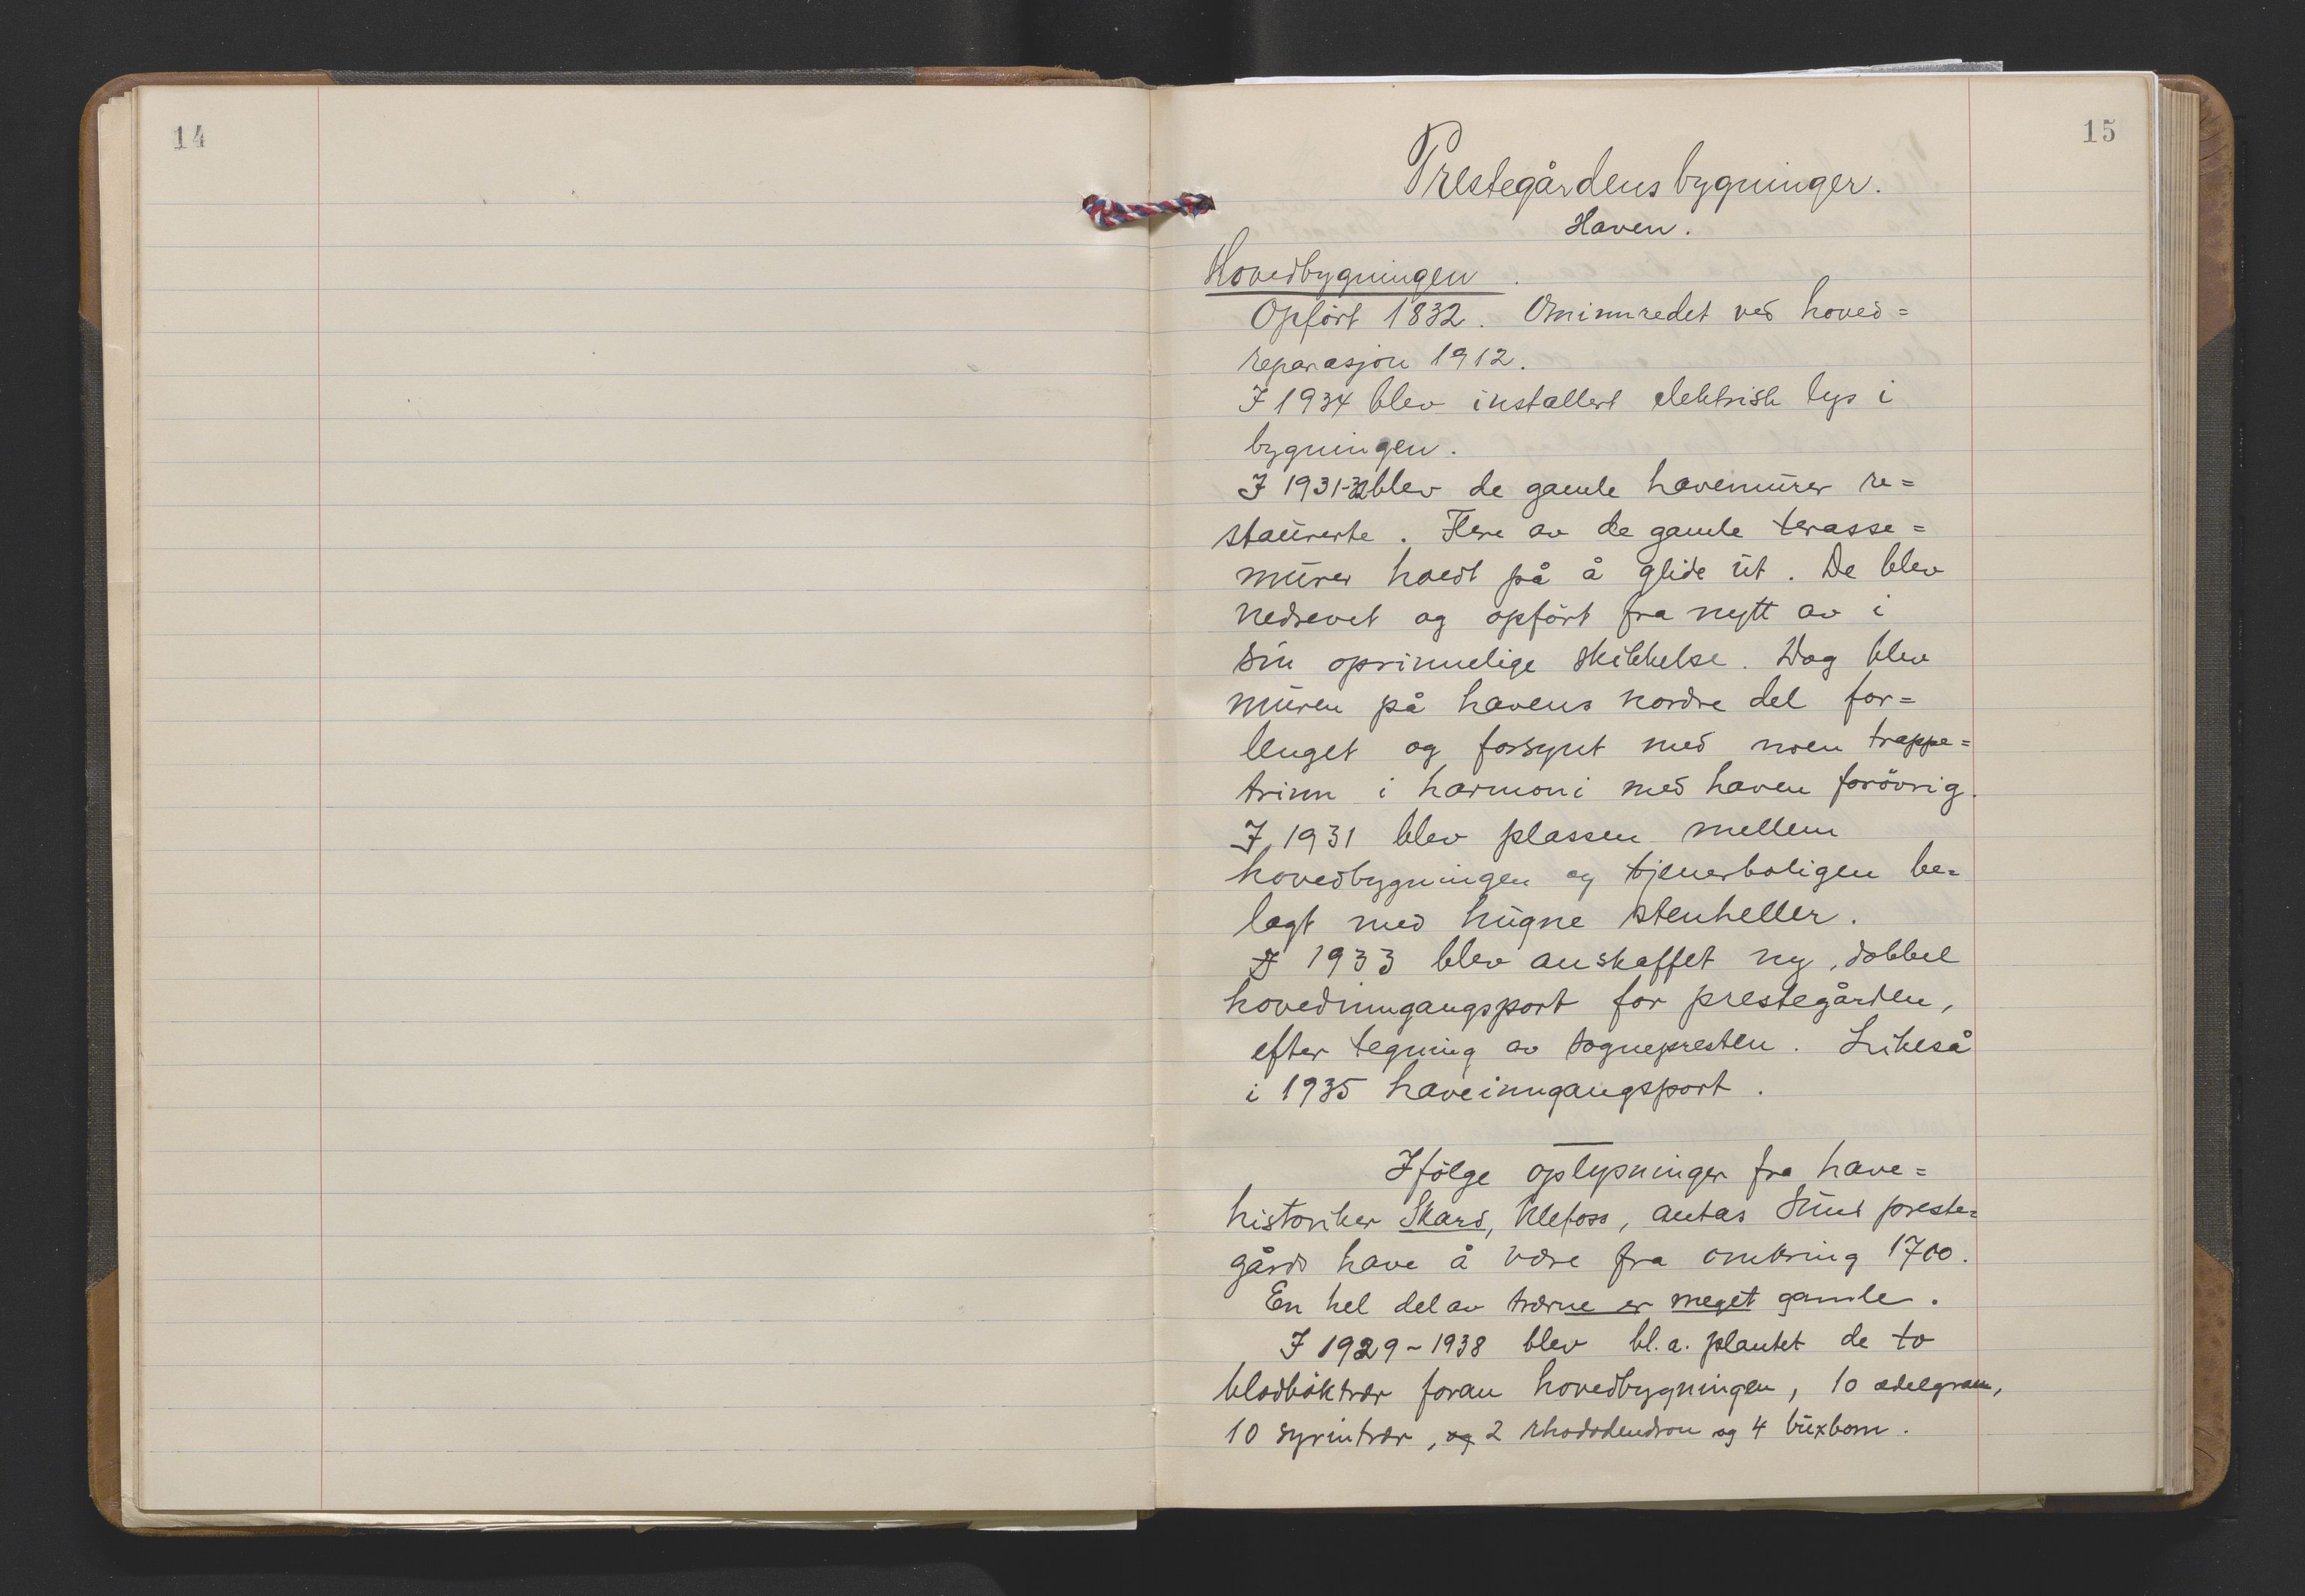 14
15
Prestegårdens bygninger.
Haven.
Hovedbygningen.
Opført 1832. Ominnredet ved hoved=
reparasjon 1912.
I 1934 blev installert elektrisk lys i
bygningen.
I 1931-32 blev de gamle havemurer re=
staurerte. Flere av de gamle terasse=
murer holdt på å glide ut. De blev
nedrevet og opført fra nytt av i
sin oprinnelige skikkelse. Dog blev
muren på havens nordre del for=
lenget og forsynt med noen trappe=
trinn i harmoni med haven forøvrig.
I 1931 blev plassen mellem
hovedbygningen og tjenerboligen be=
lagt med hugne stenheller.
I 1933 blev anskaffet ny, dobbel
hovedinngangsport for prestegården,
efter tegning av sognepresten. Likeså
i 1935 haveinngangsport.
Ifølge oplysninger fra have=
historiker Skard, Klefoss, antas Sund preste=
gårds have å være fra omkring 1700.
En hel del av trærne er meget gamle.
I 1929-1938 blev bl.a. plantet de to
blodbøktrær foran hovedbygningen, 10 edelgran,
10 syrintrær, og 2 rhododendron og 4 buxbom.